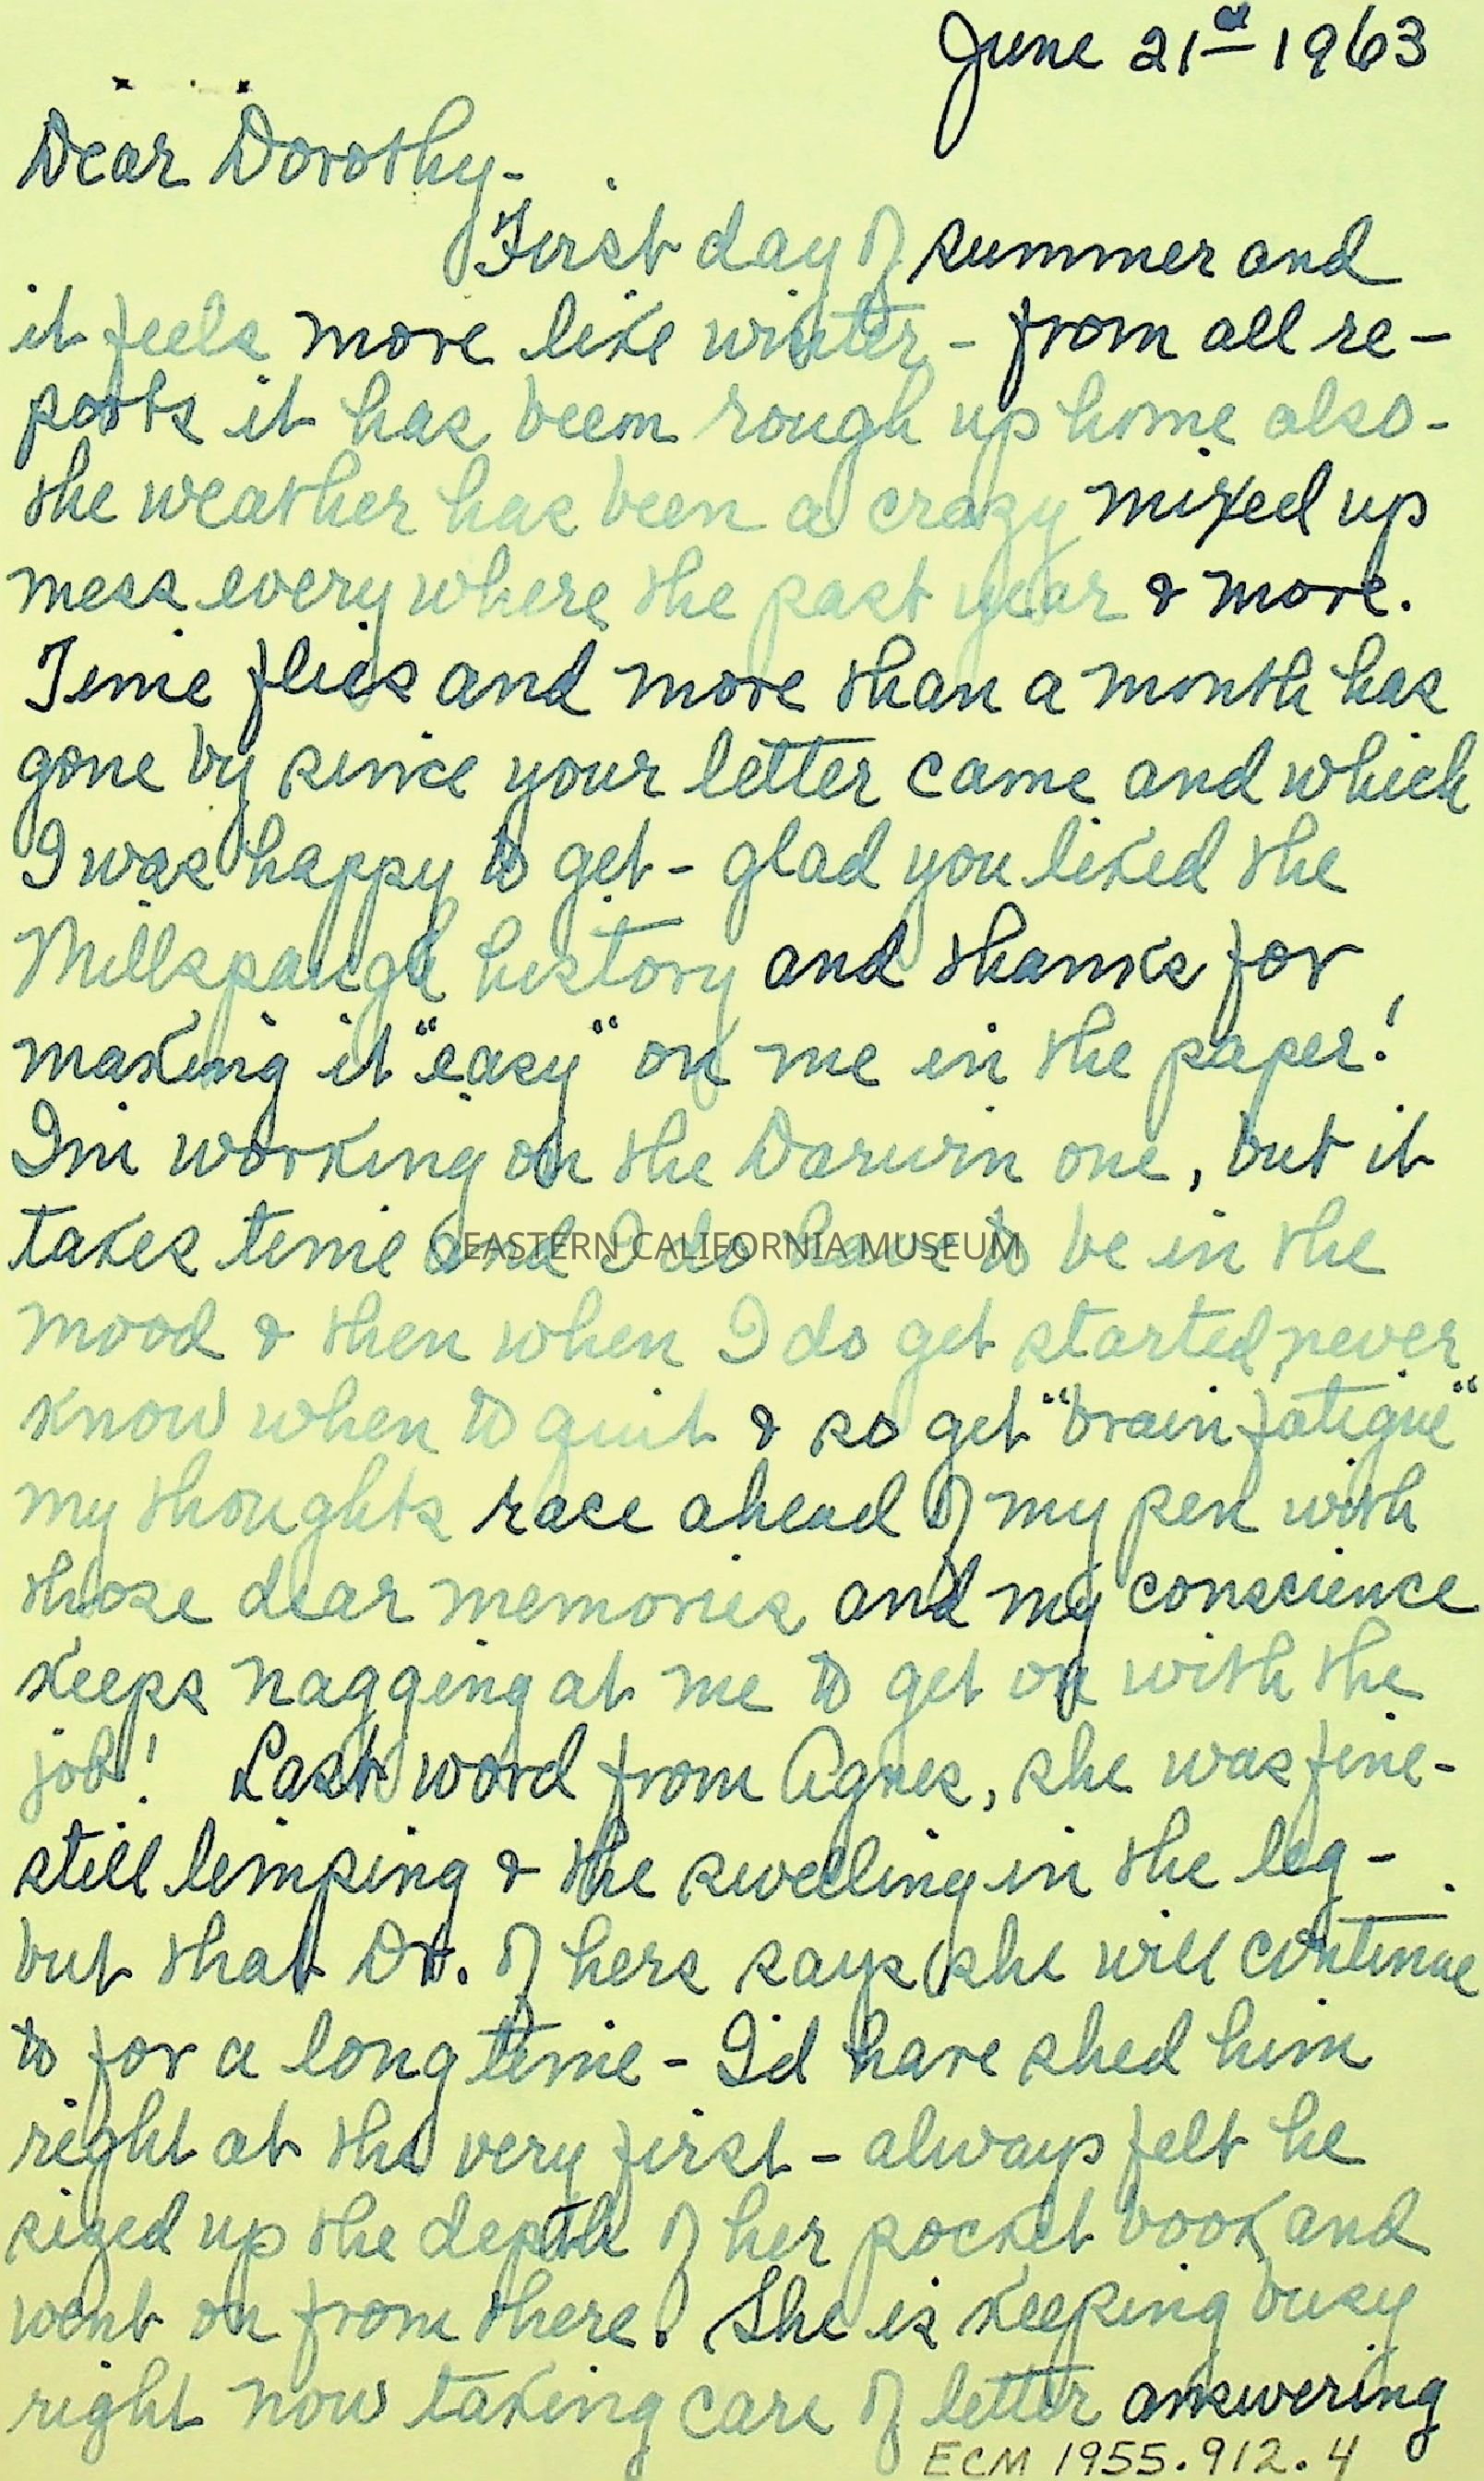 June 21st 1963
Dear Dorothy-
First day of summer and
it feels more like winter - from all re-
ports it has been rough up home also-
the weather has been a crazy mixed up
mess everywhere the past year & more.
Time flies and more than a month has
gone by since your letter came and which
I was happy to get - glad you liked the
Millspaugh history and thanks for
making it "easy" on me in the paper!
I'm working on the Darwin one, but it
takes time and I do have to be in the
EASTERN CALIFORNIA MUSEUM
mood & then when I do get started, never
know when to quit & so get "brain fatigue"
my thoughts race ahead of my pen with
those dear memories and my conscience
keeps nagging at me to get on with the
job! Last word from Agnes, she was fine-
still limping & the swelling in the leg-
but that Dr. of hers says she will continue
to for a long time - I'd have shed him
right at the very first - always felt he
sized up the depth of her pocket book and
went on from there. She is keeping busy
right now taking care of letter answering
ECM 1955.912.4